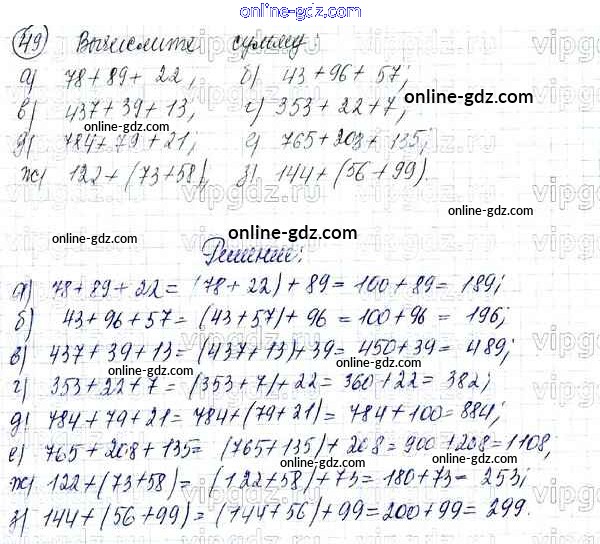 online-gdz.com
49 Вычислите сумму:
а) 78+89+22; б) 43+96+57;
online-gdz.com
в) 437+39+13; г) 353+22+7;
online-gdz.com
д) 784+79+21; е) 765+208+135;
online-gdz.com
ж) 122+(73+58); з) 144+(56+99).
online-gdz.com
online-gdz.com
online-gdz.com
Решение:
online-gdz.com
а) 78+89+22=(78+22)+89=100+89=189;
б) 43+96+57=(43+57)+96=100+96=196;
online-gdz.com
в) 437+39+13=(437+13)+39=450+39=489;
г) 353+22+7=(353+7)+22=360+22=382;
online-gdz.com
д) 784+79+21=784+(79+21)=784+100=884;
online-gdz.com
е) 765+208+135=(765+135)+208=900+208=1108;
online-gdz.com
ж) 122+(73+58)=(122+58)+73=180+73=253;
online-gdz.com
з) 144+(56+99)=(144+56)+99=200+99=299.
online-gdz.com